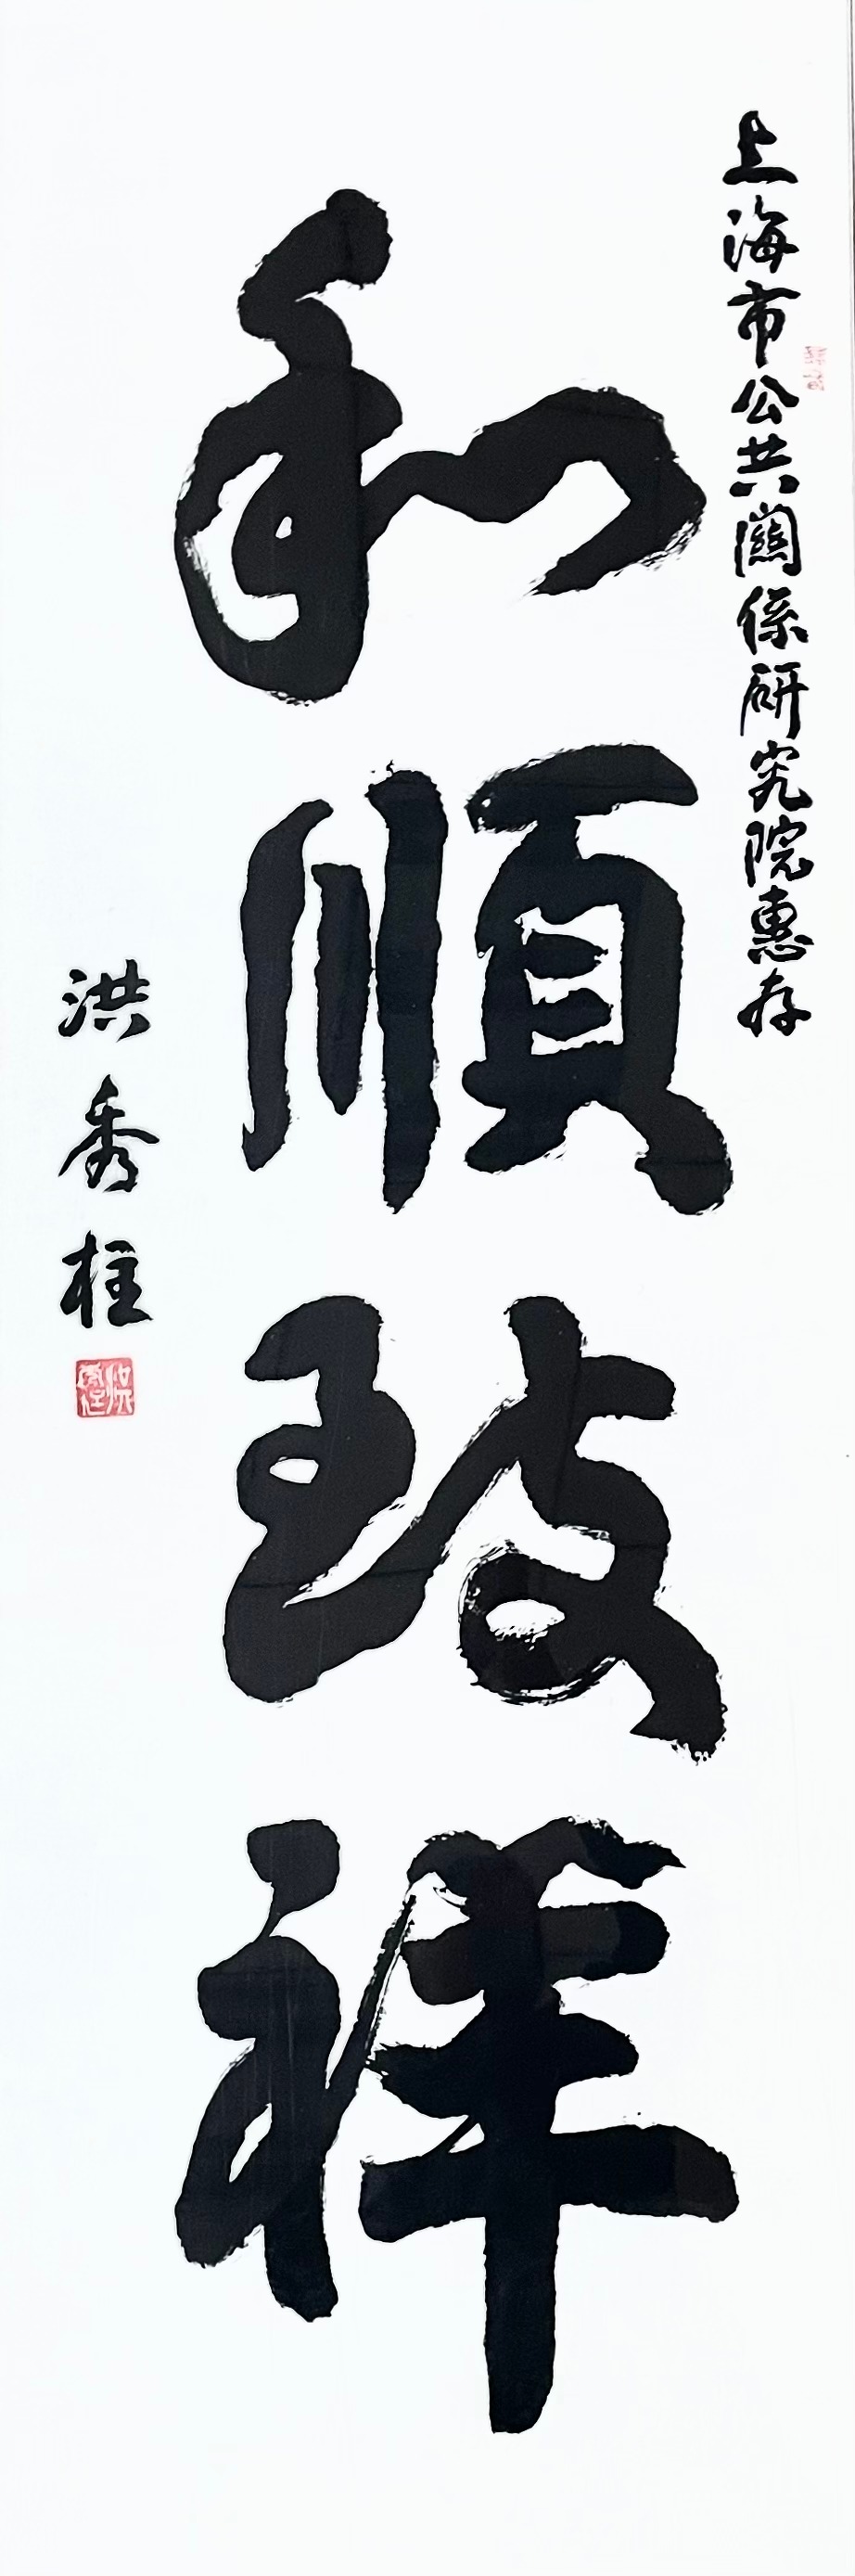 上海市公共關係研究院惠存
和順致祥
洪秀柱
洪秀柱